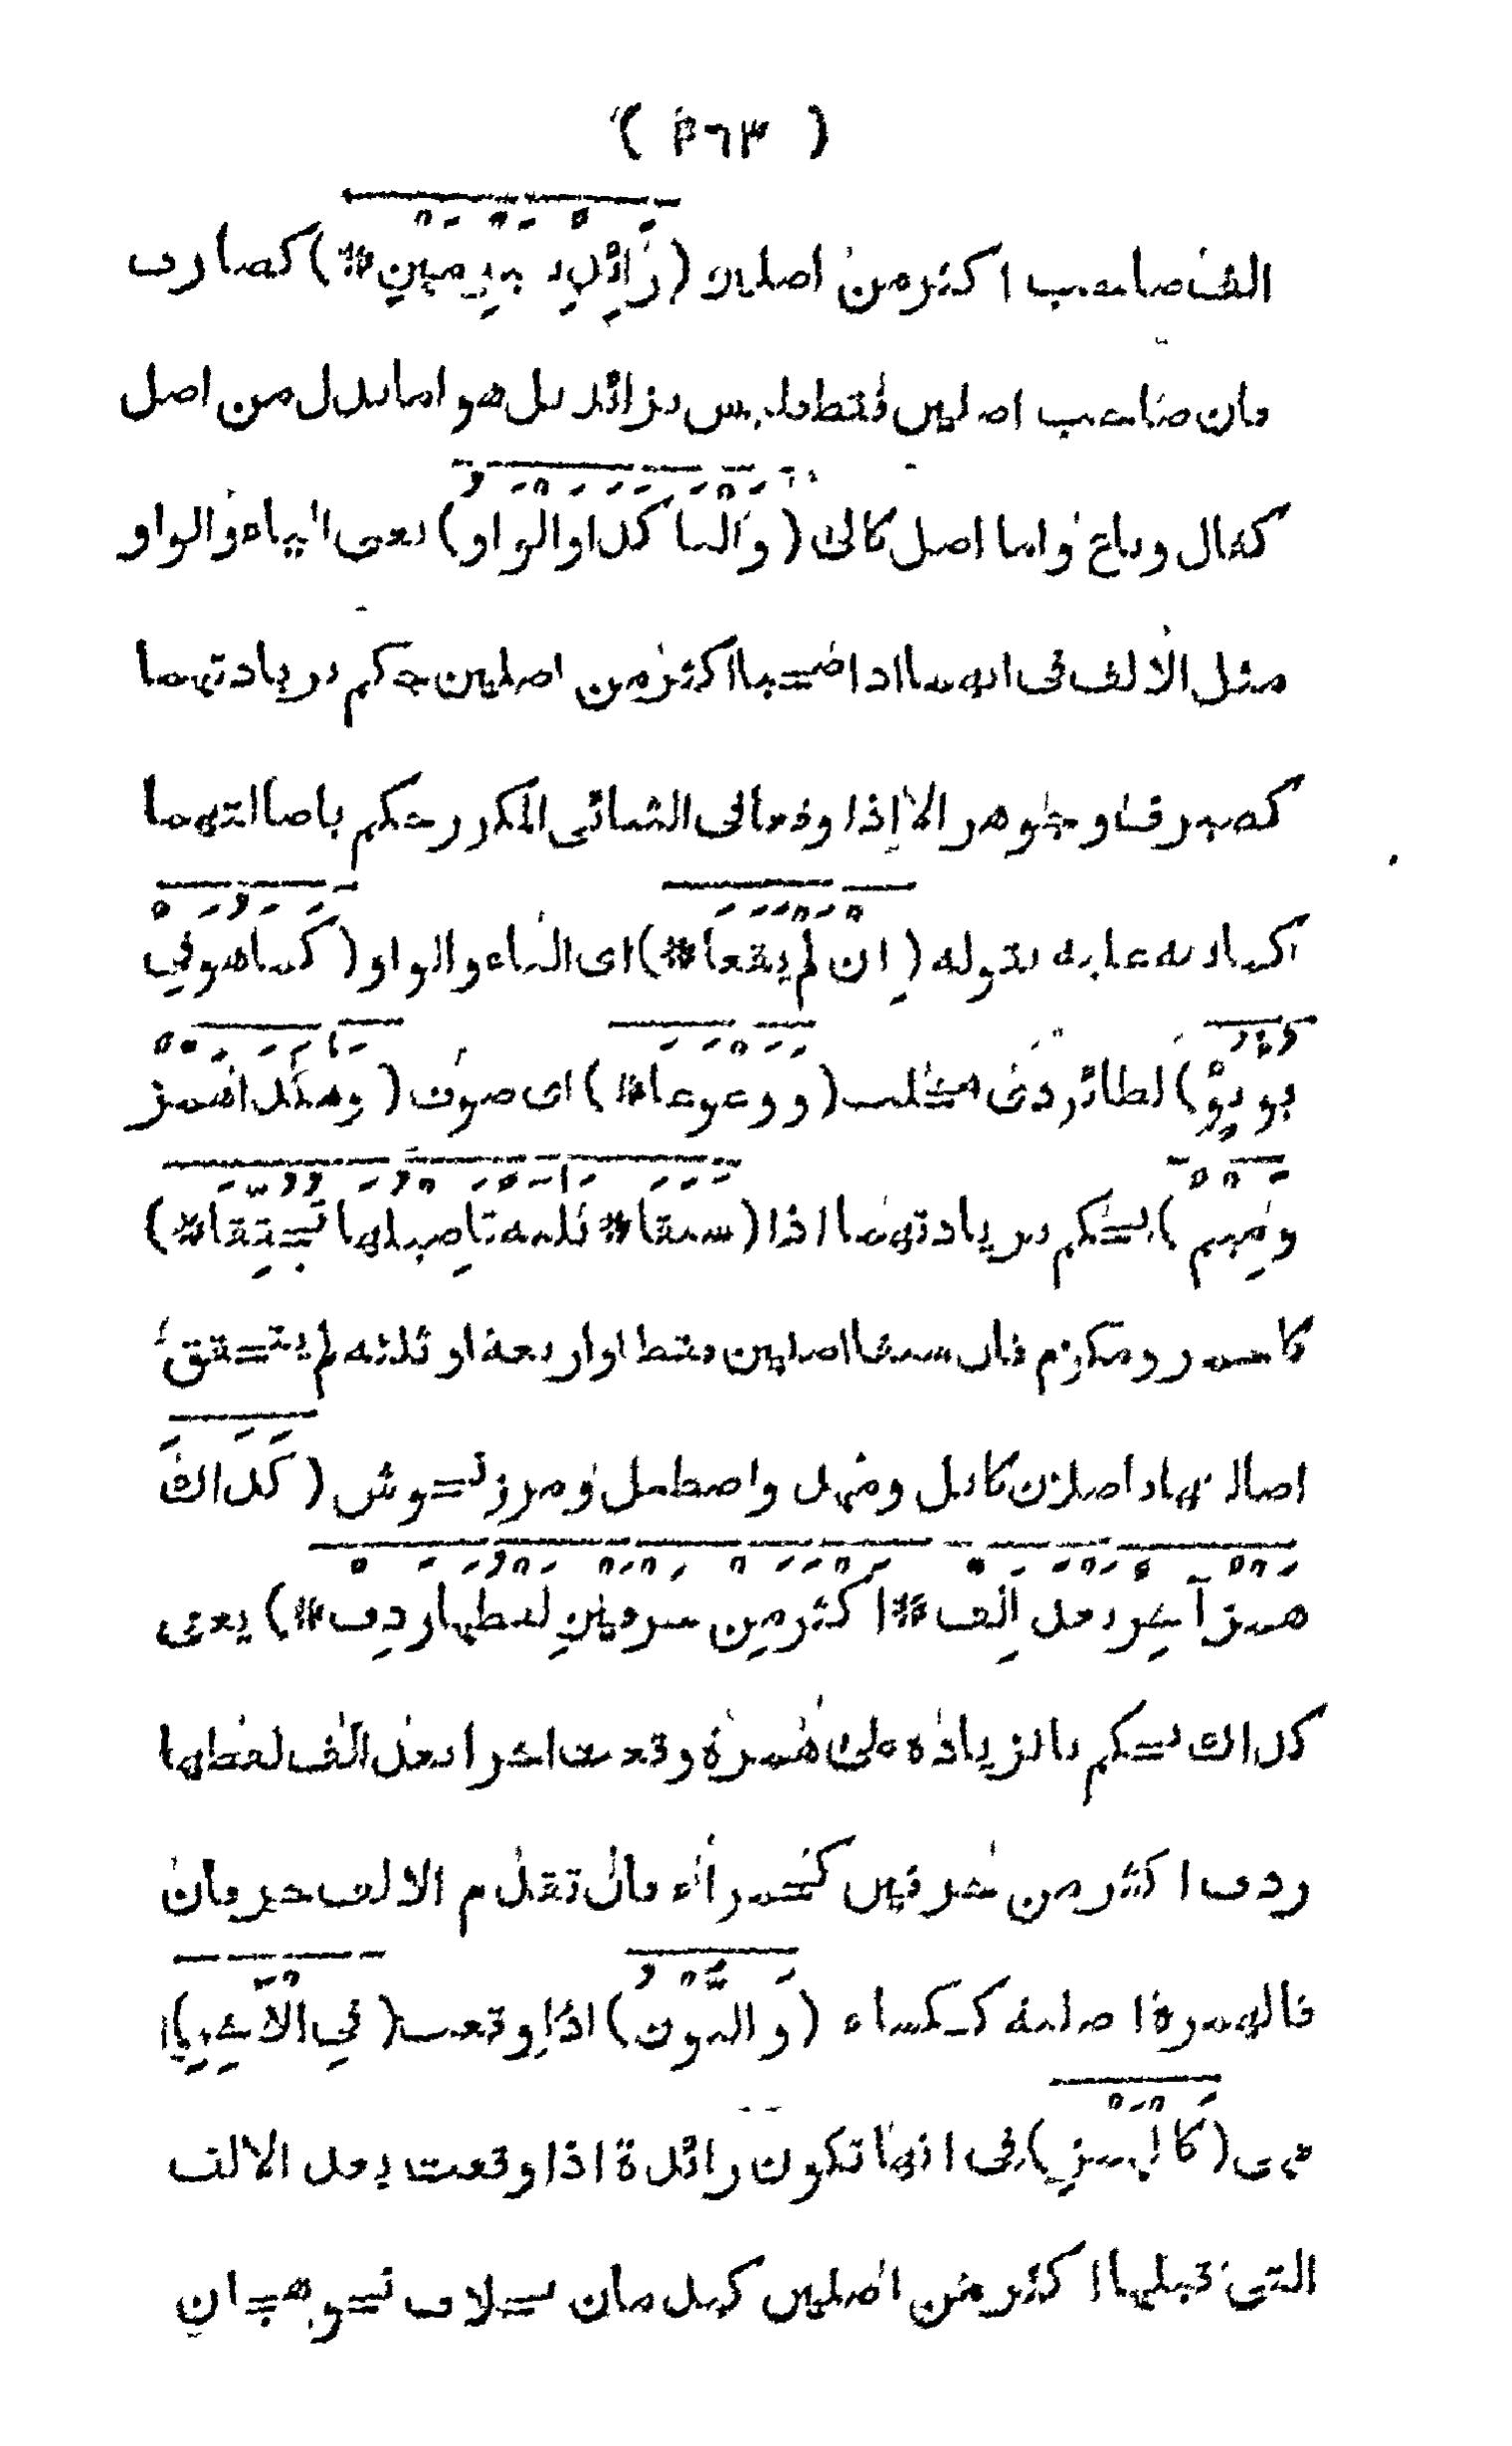 ( ٣٦٣ )
الف صاحب اكثر من اصلين (زَائِدٌ بِغَيْرِ مَيْنِ #) كضارب
فان صاحب اصلين فقط فليس بزائد بل هو اما بدل من اصل
كقال وباع واما اصل كالى (وَالْيَا كَذَا وَالْوَاوُ) يعنى الياء والواو
مثل الالف فى انهما اذا صحبا اكثر من اصلين حكم بزيادتهما
كصيرف وجوهر الا اذا وقعا فى الثنائى المكرر حكم باصالتهما
كما نبه عليه بقوله (اِنْ لَمْ يَقَعَا #) اى الياء والواو (كَمَا هُمَا فِي
يُؤْيُؤٍ) لطائر ذى مخلب (وَوَعْوَعَا #) اى صوت (وَهٰكَذَا هَمْزٌ
وَمِيمٌ) يحكم بزيادتهما اذا (سَبَقَا # ثَلٰثَةً تَأْصِيلُهَا تُحُقِّقَا #)
كاحمد ومكرم فان سبقا اصلين فقط او اربعة او ثلثه لم يتحقق
اصالتها فاصلان كابل ومهد واصطبل ومرزنجوش (كَذَاكَ
هَمْزٌ آخِرٌ بَعْدَ اَلِفْ # اَكْثَرَ مِنْ حَرْفَيْنِ لَفْظُهَا رَدِفْ #) يعنى
كذاك يحكم بالزيادة على همزة وقعت اخرا بعد الف لفظها
ردف اكثر من حرفين كحمراء فان تقدم الالف حرفان
فالهمزة اصلية ككساء (وَالنُّونُ) اذا وقعت (فِي الْآخِرِ)
هى (كَالْهَمْزِ) فى انها تكون زائدة اذا وقعت بعد الالف
التى قبلها اكثر من اصلين كندمان بخلاف نحو هجان